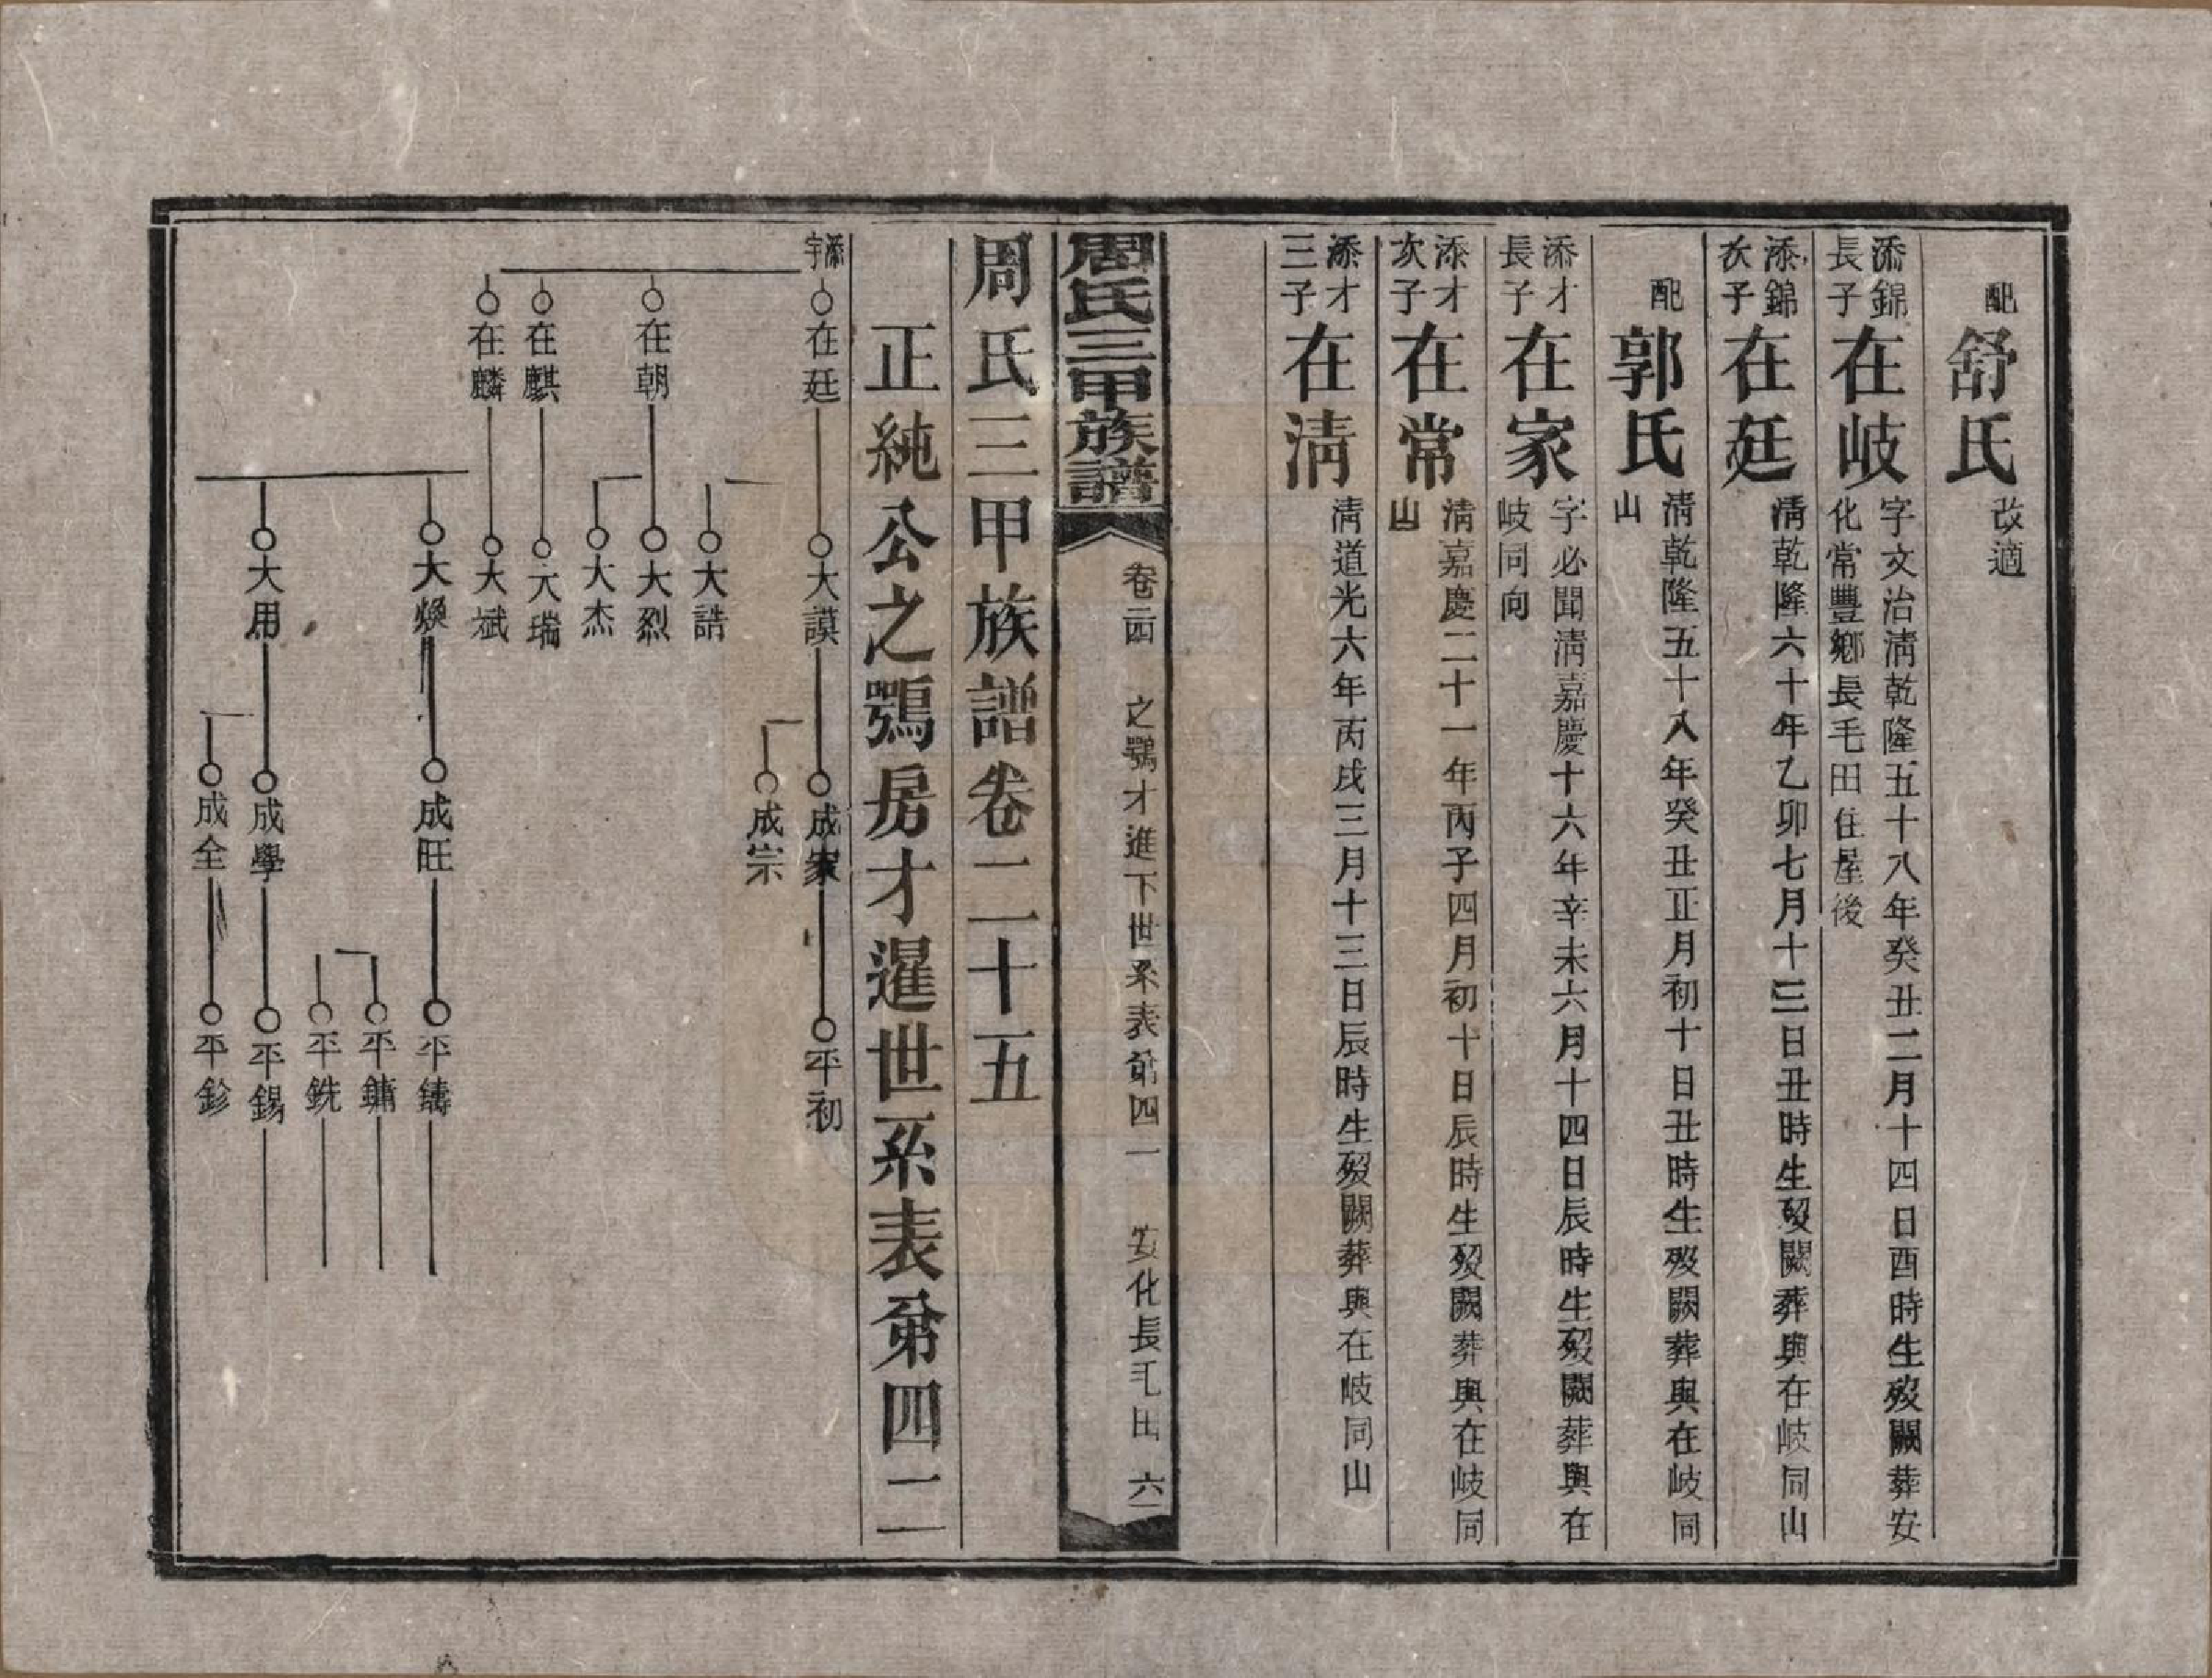 配舒氏改適
添錦長子在岐字文治淸乾隆五十八年癸丑二月十四日酉時生歿闕葬安
化常豐鄉長毛田住屋後
添錦次子在廷淸乾隆六十年乙卯七月十三日丑時生歿闕葬與在岐同山
配郭氏淸乾隆五十八年癸丑正月初十日丑時生歿闕葬與在岐同
山
添才長子在家字必聞淸嘉慶十六年辛未六月十四日辰時生歿闕葬與在
岐同向
添才次子在常淸嘉慶二十一年丙子四月初十日辰時生歿闕葬與在岐同
山
添才三子在淸淸道光六年丙戌三月十三日辰時生歿闕葬與在岐同山
周氏三甲族譜 卷二四 之鶚才進下世系表弟四一 安化長毛田 六一
周氏三甲族譜卷二十五
正純公之鶚房才暹世系表弟四二
添宇
在廷 大謨 成家 平初
成宗
大誥
在朝 大烈
大杰
在麒 大瑞
在麟 大斌
大煥 成旺 平鑄
平鏞
平銑
大用 成學 平錫
成全 平鉁